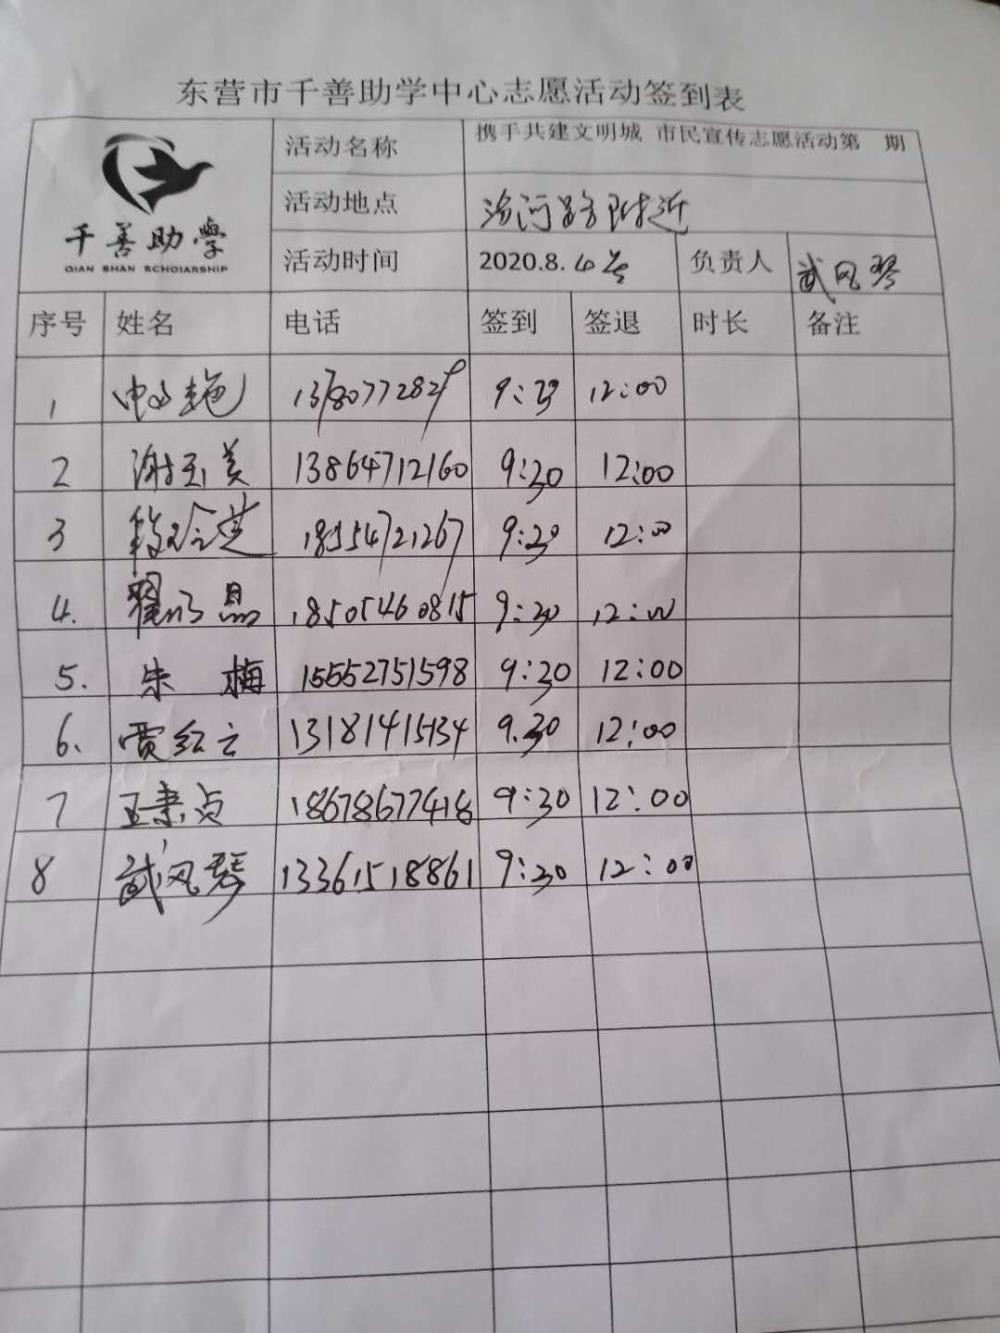 东营市千善助学中心志愿活动签到表
千善助學
QIAN SHAN SCHOIARSHIP
活动名称 携手共建文明城 市民宣传志愿活动第 期
活动地点 附近
活动时间 2020.8.4号 负责人 武风琴
序号 姓名 电话 签到 签退 时长 备注
1 9:30 12:00
2 谢玉美 13864712160 9:30 12:00
3 9:30 12:00
4. 18505460815 9:30 12:00
5. 朱梅 15552751598 9:30 12:00
6. 贾红云 9.30 12:00
7 18678677418 9:30 12:00
8 武风琴 13361518861 9:30 12:00